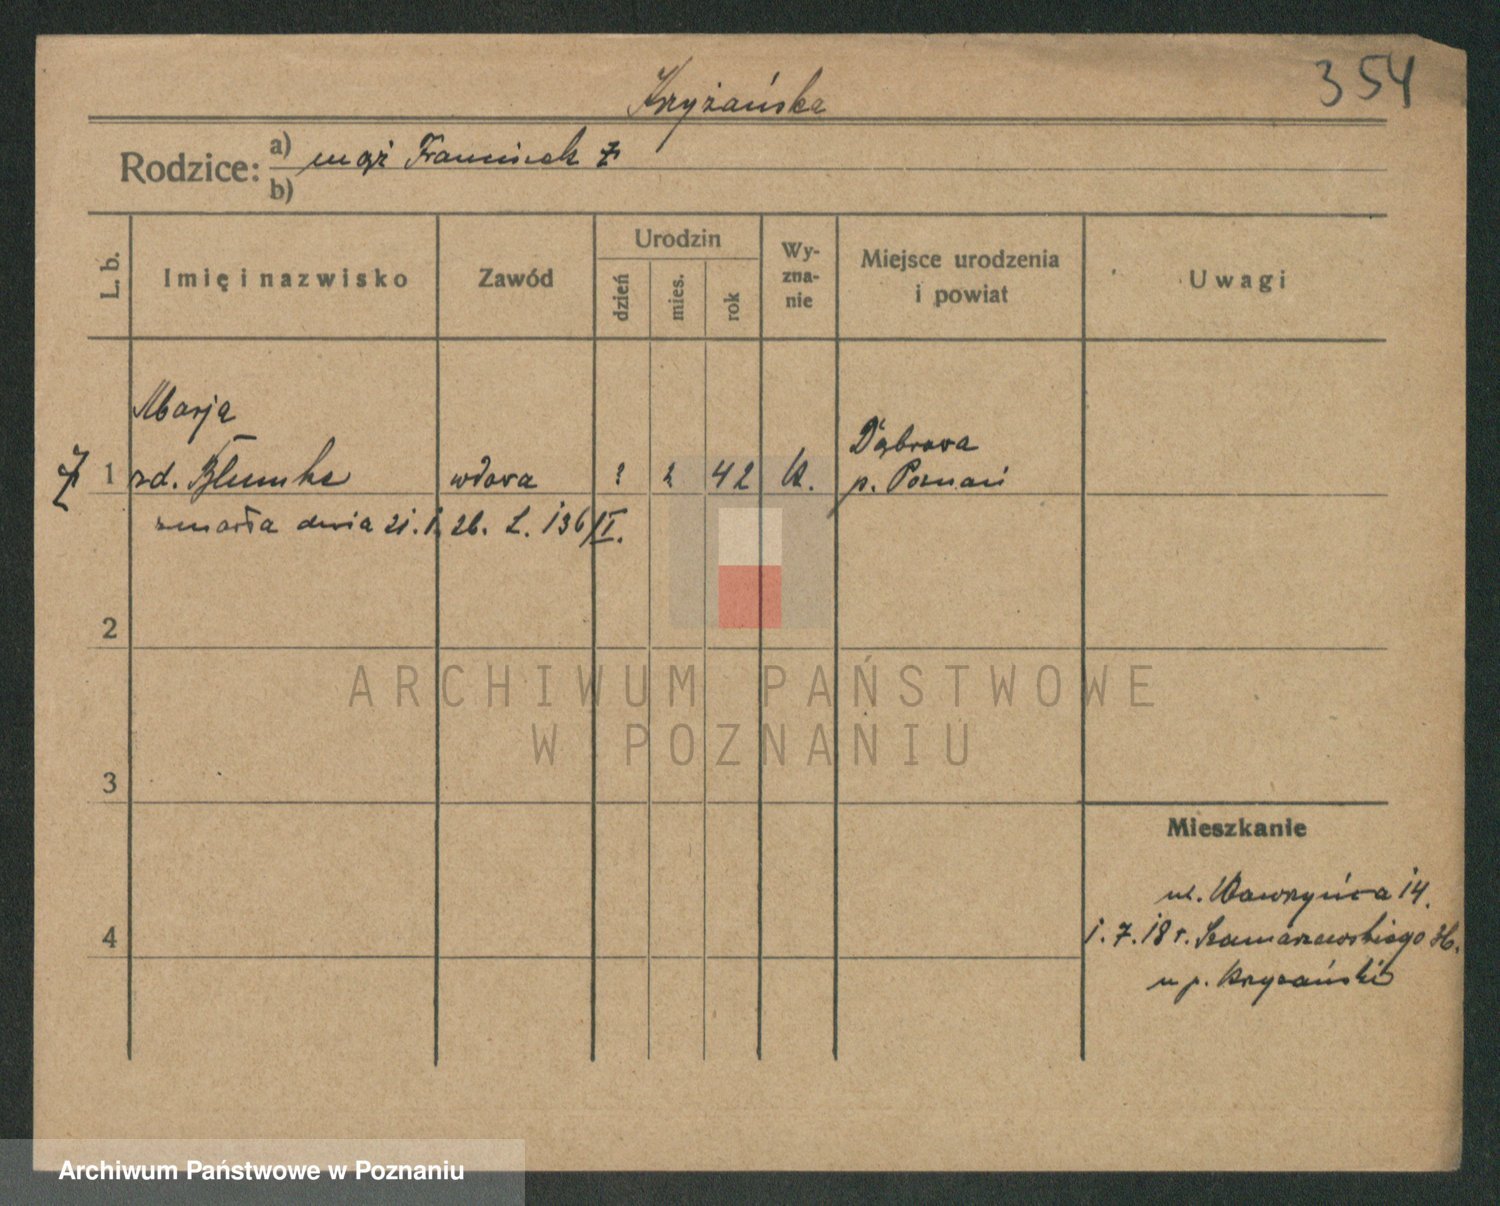 Krzyżańska
354
Rodzice: a) mąż Franciszek
b)
L. b.
Imię i nazwisko
Zawód
Urodzin
dzień
mies.
rok
Wy-
zna-
nie
Miejsce urodzenia
i powiat
Uwagi
Marja
1 zd. Blumke wdowa 2 2 42 k.
Dąbrowa
p. Poznań
zmarła dnia 21.1.26. L. 136/II.
2
3
4
Mieszkanie
ul. Wawrzyńca 14.
1.7.18 r. Szamarzewskiego 36.
u p. Krzyżański
ARCHIWUM PAŃSTWOWE
W POZNANIU
Archiwum Państwowe w Poznaniu